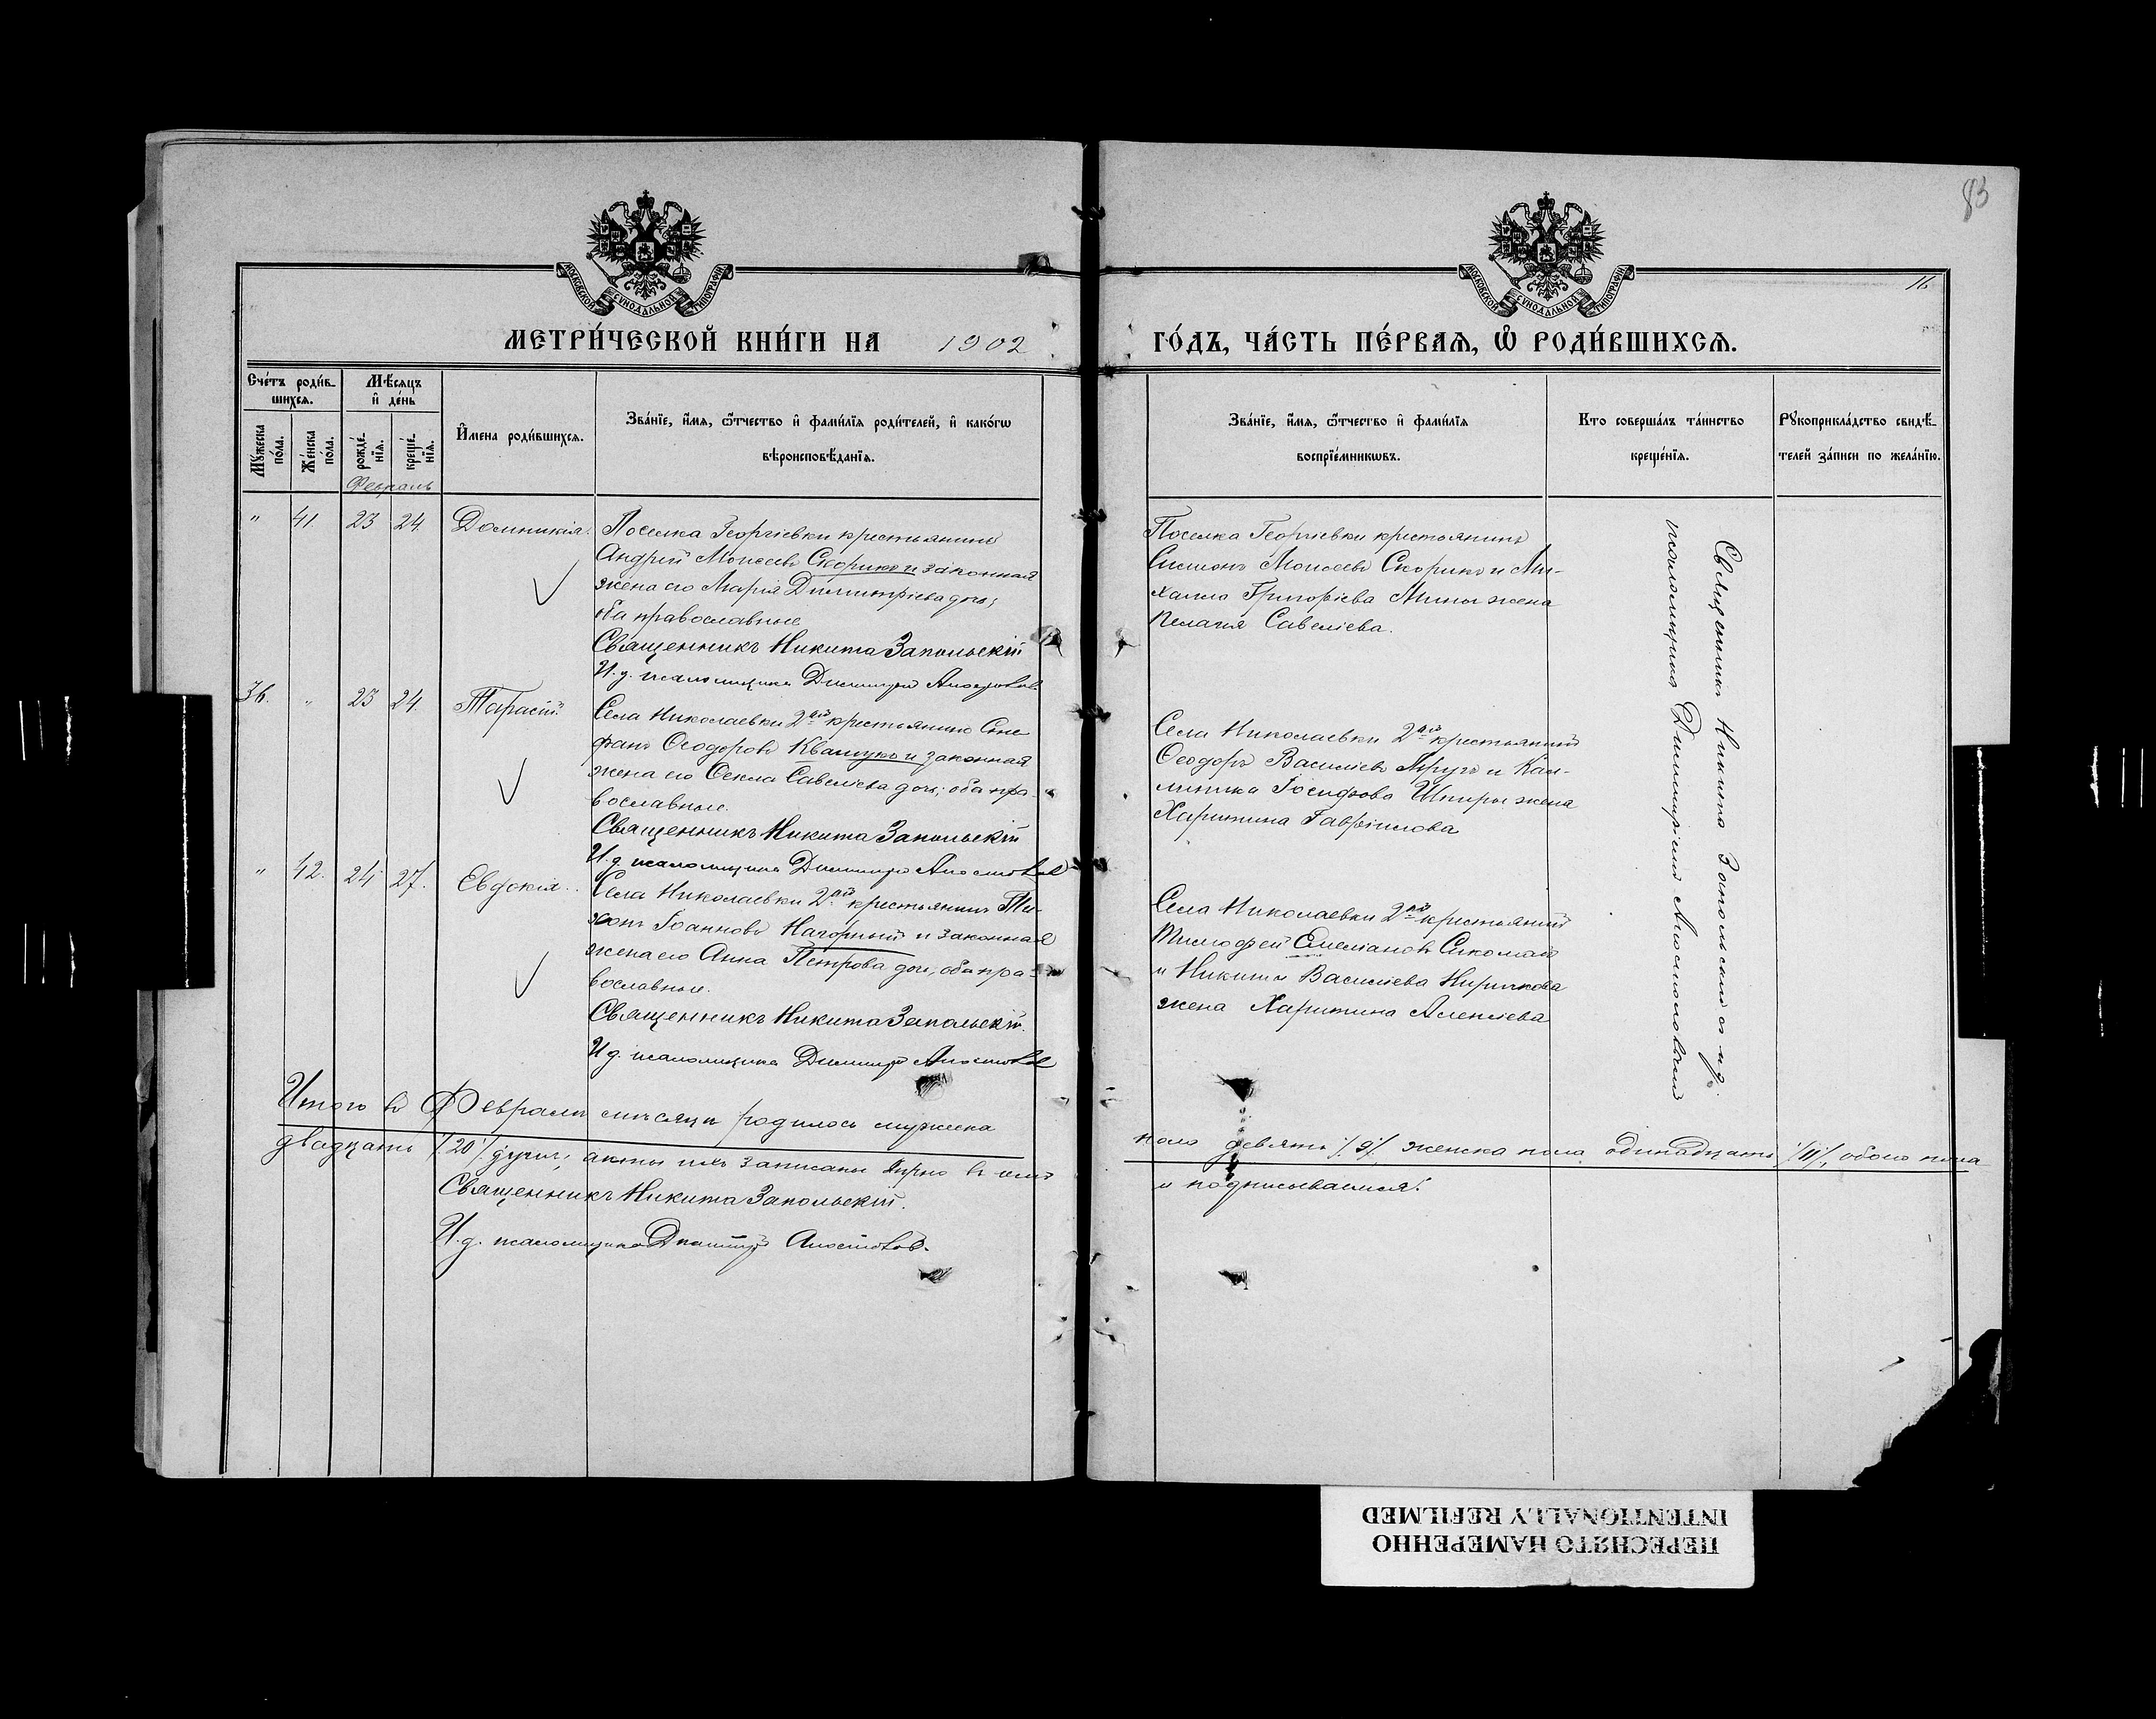 83
16
МОСКОВСКОЙ СУНОДАЛЬНОЙ ТИПОГРАФІИ
МОСКОВСКОЙ СУНОДАЛЬНОЙ ТИПОГРАФІИ
МЕТРИ́ЧЕСКОЙ КНИ́ГИ НА 1902 ГО́ДЪ, ЧА́СТЬ ПЕ́РВАѦ, Ѡ РОДИ́ВШИХСѦ.
Сче́тъ роди́в-
шихсѧ.
Мꙋ́жеска по́ла.
Же́нска пола.
Мѣ́сяцъ
и҆ де́нь
рожде́-
нїѧ.
креще́-
нїѧ.
И҆мена роди́вшихсѧ.
Зва́нїе, и҆́мѧ, ѻ҆́тчество и҆ фами́лїѧ роди́телей, и҆ како́гѡ
вѣроисповѣ́данїѧ.
Зва́нїе, и҆́мѧ, ѻ҆́тчество и҆ фами́лїѧ
воспрїе́мникѡвъ.
Кто соверша́лъ та́инство
креще́нїѧ.
Рꙋкоприкла́дство свидѣ́-
телей за́писи по жела́нїю.
Февраль
" 41. 23 24. Домникія.
Поселка Георгіевки крестьянинъ
Андрей Моисеевъ Скорикъ и законная
жена его Марія Димитріева дочь;
оба православные
Священникъ Никита Запольскій
И. д. псаломщика Димитрій
Поселка Георгіевки крестьянинъ
Симеонъ Моисеевъ Скорикъ и Ми-
хаила Григоріева Мины жена
Пелагія Савеліева.
36. " 23 24. Тарасій.
Села Николаевки 2ой крестьянинъ Сте
фанъ Ѳеодоровъ Квашукъ и законная
жена его Ѳекла Савеліева дочь; оба пра-
вославные.
Священникъ Никита Запольскій
И. д. псаломщика Димитрій
Села Николаевки 2ой крестьянинъ
Ѳеодоръ Василіевъ и Кал-
линика Іосифова Шпиры жена
Харитина Гавріилова
" 42. 24 27. Евдокія.
Села Николаевки 2ой крестьянинъ Ти-
хонъ Іоанновъ Нагорный и законная
жена его Анна Петрова дочь, оба пра-
вославные.
Священникъ Никита Запольскій.
И д. псаломщика Димитрій
Села Николаевки 2ой крестьянинъ
Тимофей Емеліановъ
и Никиты Василіева Киричкова
жена Харитина Алексіева
Священникъ Никита Запольскій и и. д.
псаломщика Димитрій
Итого въ Февралѣ мѣсяцѣ родилось мужеска
пола девять /9/, женска пола одинадцать /11/, обоего пола
двадцать /20/ душъ; акты ихъ записаны вѣрно въ чемъ
и подписываемся:
Священникъ Никита Запольскій.
И. д. псаломщика Димитрій
ПЕРЕСНЯТО НАМЕРЕННО
INTENTIONALLY REFILMED